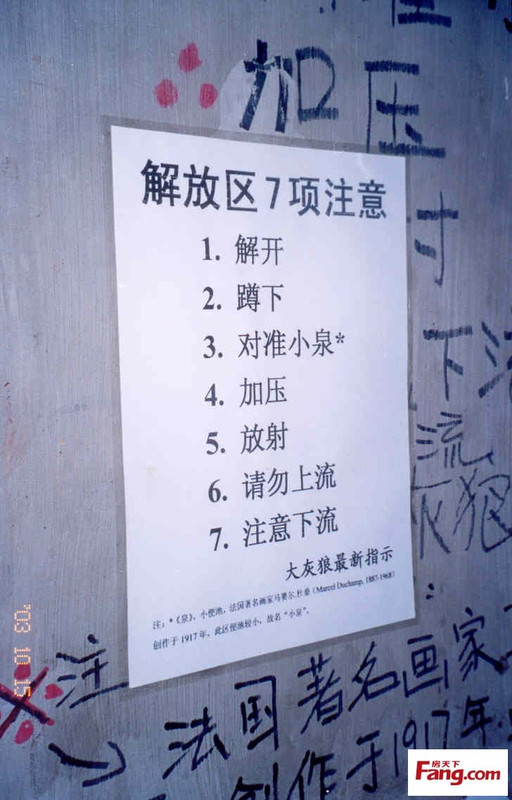 加
压
解放区7项注意
1. 解开
2. 蹲下
3. 对准小泉*
4. 加压
5. 放射
6. 请勿上流
7. 注意下流
大灰狼最新指示
注：*《泉》，小便池，法国著名画家马赛尔.杜桑（Marcel Duchamp, 1887-1968）
创作于 1917 年，此区便池较小，故名“小泉”。
下流
灰狼
注：
法国著名画家
创作于1917年
'03 10 15
房天下
Fang.com